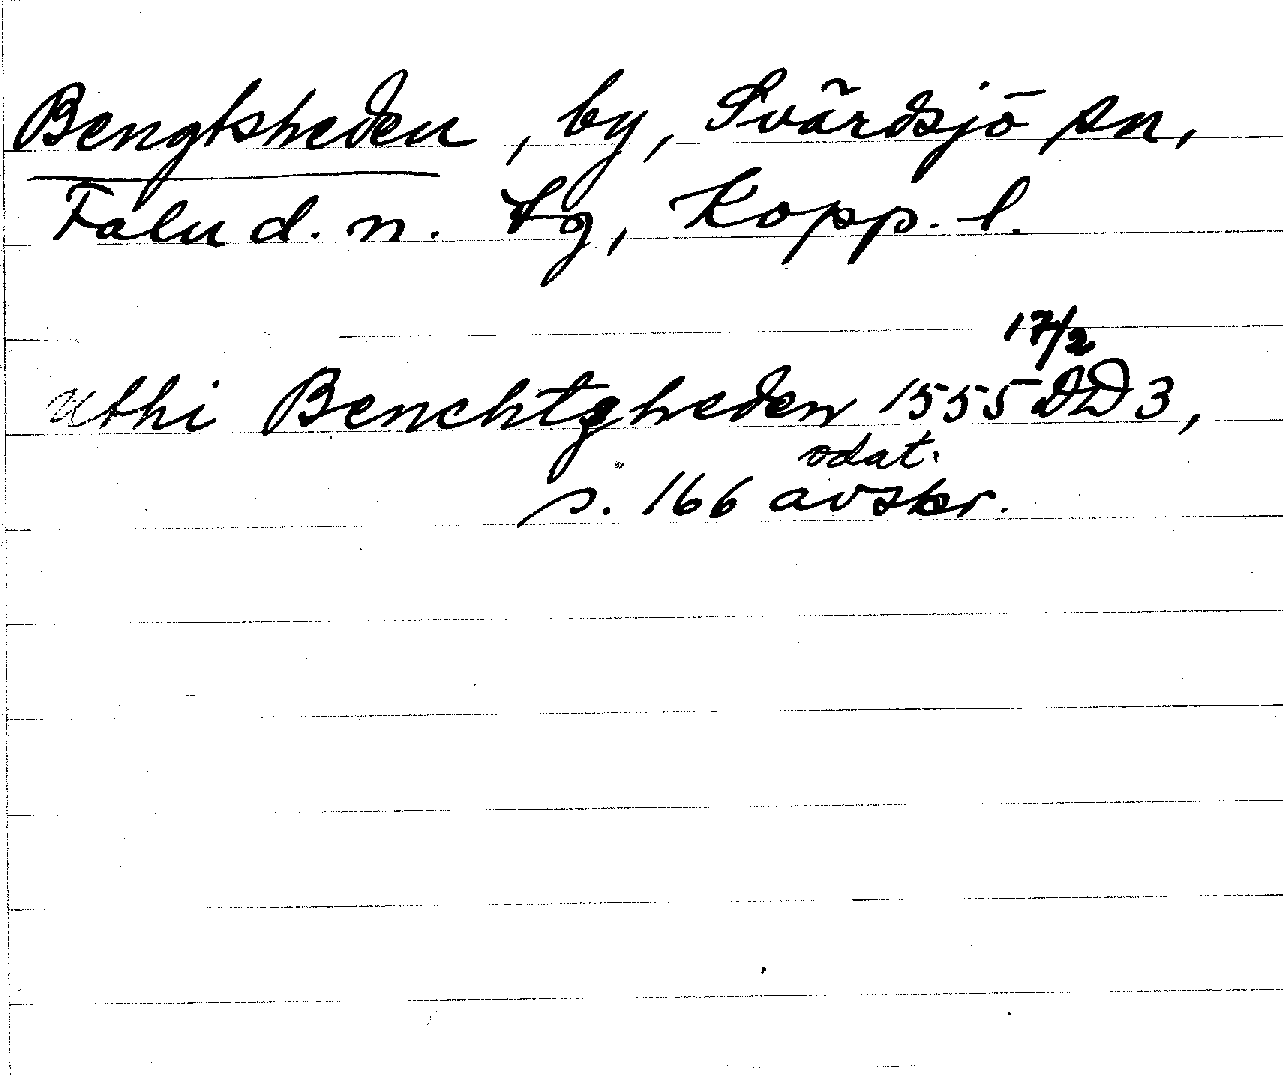 Bengtsheden, by, Svärdsjö sn,
Falu d. n. tg, Kopp. l.
17/2
uthi Benchtgheden 1555 DD 3,
odat.
s. 166 avskr.